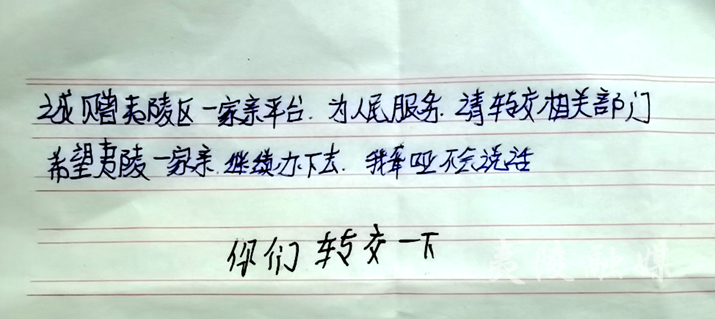 诚赠夷陵区一家亲平台.为人民服务.请转交相关部门
希望夷陵一家亲.继续办下去.我聋哑不会说话
你们转交一下
夷陵融媒